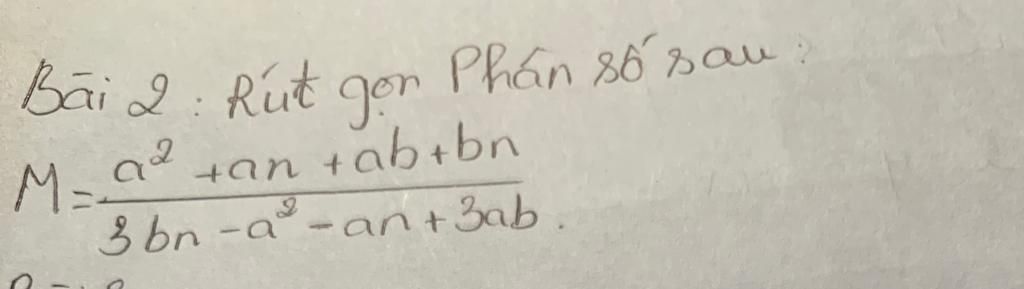 Bài 2: Rút gọn Phấn số sau:
M = a² + an + ab + bn / 3bn - a² - an + 3ab.